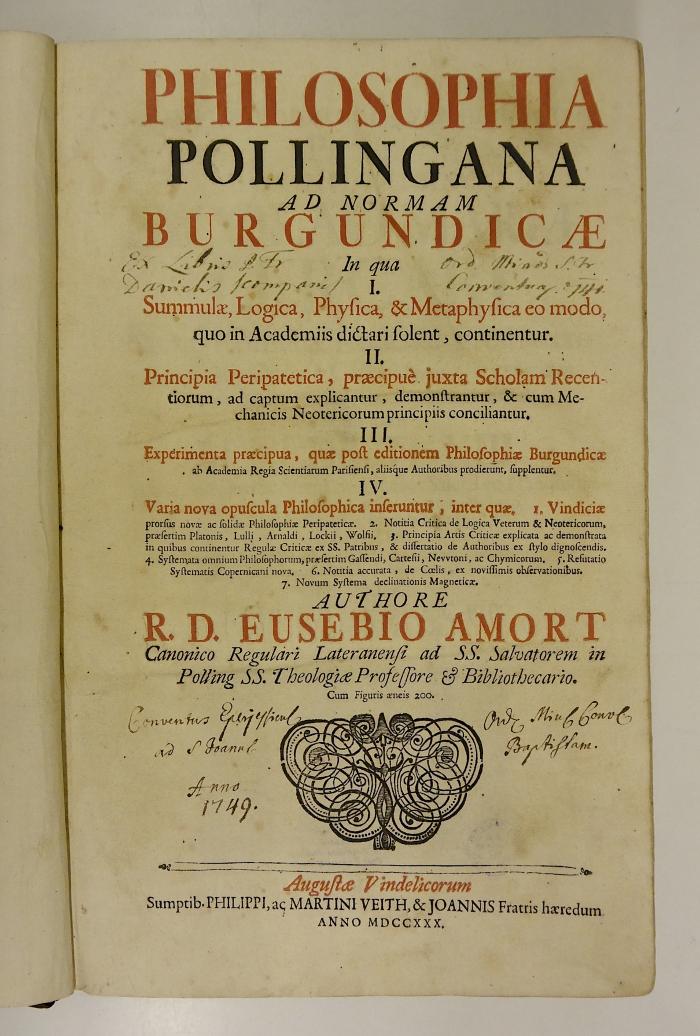 PHILOSOPHIA
POLLINGANA
AD NORMAM
BURGUNDICÆ
In qua
Ex Libris P. Fr
Ord Minor S. Fr
Danielis
Conventua.
I.
Summulæ, Logica, Physica, & Metaphysica eo modo,
quo in Academiis dictari solent, continentur.
II.
Principia Peripatetica, præcipuè juxta Scholam Recen-
tiorum, ad captum explicantur, demonstrantur, & cum Me-
chanicis Neotericorum principiis conciliantur.
III.
Experimenta præcipua, quæ post editionem Philosophiæ Burgundicæ
ab Academia Regia Scientiarum Parisiensi, aliisque Authoribus prodierunt, supplentur.
IV.
Varia nova opuscula Philosophica inseruntur, inter quæ, 1. Vindiciæ
prorsus novæ ac solidæ Philosophiæ Peripateticæ. 2. Notitia Critica de Logica Veterum & Neotericorum,
præsertim Platonis, Lulli, Arnaldi, Lockii, Wolfii, 3. Principia Artis Criticæ explicata ac demonstrata
in quibus continentur Regulæ Criticæ ex SS. Patribus, & dissertatio de Authoribus ex stylo dignoscendis.
4. Systemata omnium Philosophorum, præsertim Gassendi, Cartesii, Nevvtoni, ac Chymicorum. 5. Refutatio
Systematis Copernicani nova. 6. Notitia accurata, de Cœlis, ex novissimis observationibus.
7. Novum Systema declinationis Magneticæ.
AUTHORE
R. D. EUSEBIO AMORT
Canonico Regulari Lateranensi ad SS. Salvatorem in
Polling SS. Theologiæ Professore & Bibliothecario.
Cum Figuris æneis 200.
Conventus
Ord. Min. Conv.
ad S Joann.
Baptistam.
Anno
1749.
Augustæ Vindelicorum
Sumptib. PHILIPPI, ac MARTINI VEITH, & JOANNIS Fratris hæredum
ANNO MDCCXXX.